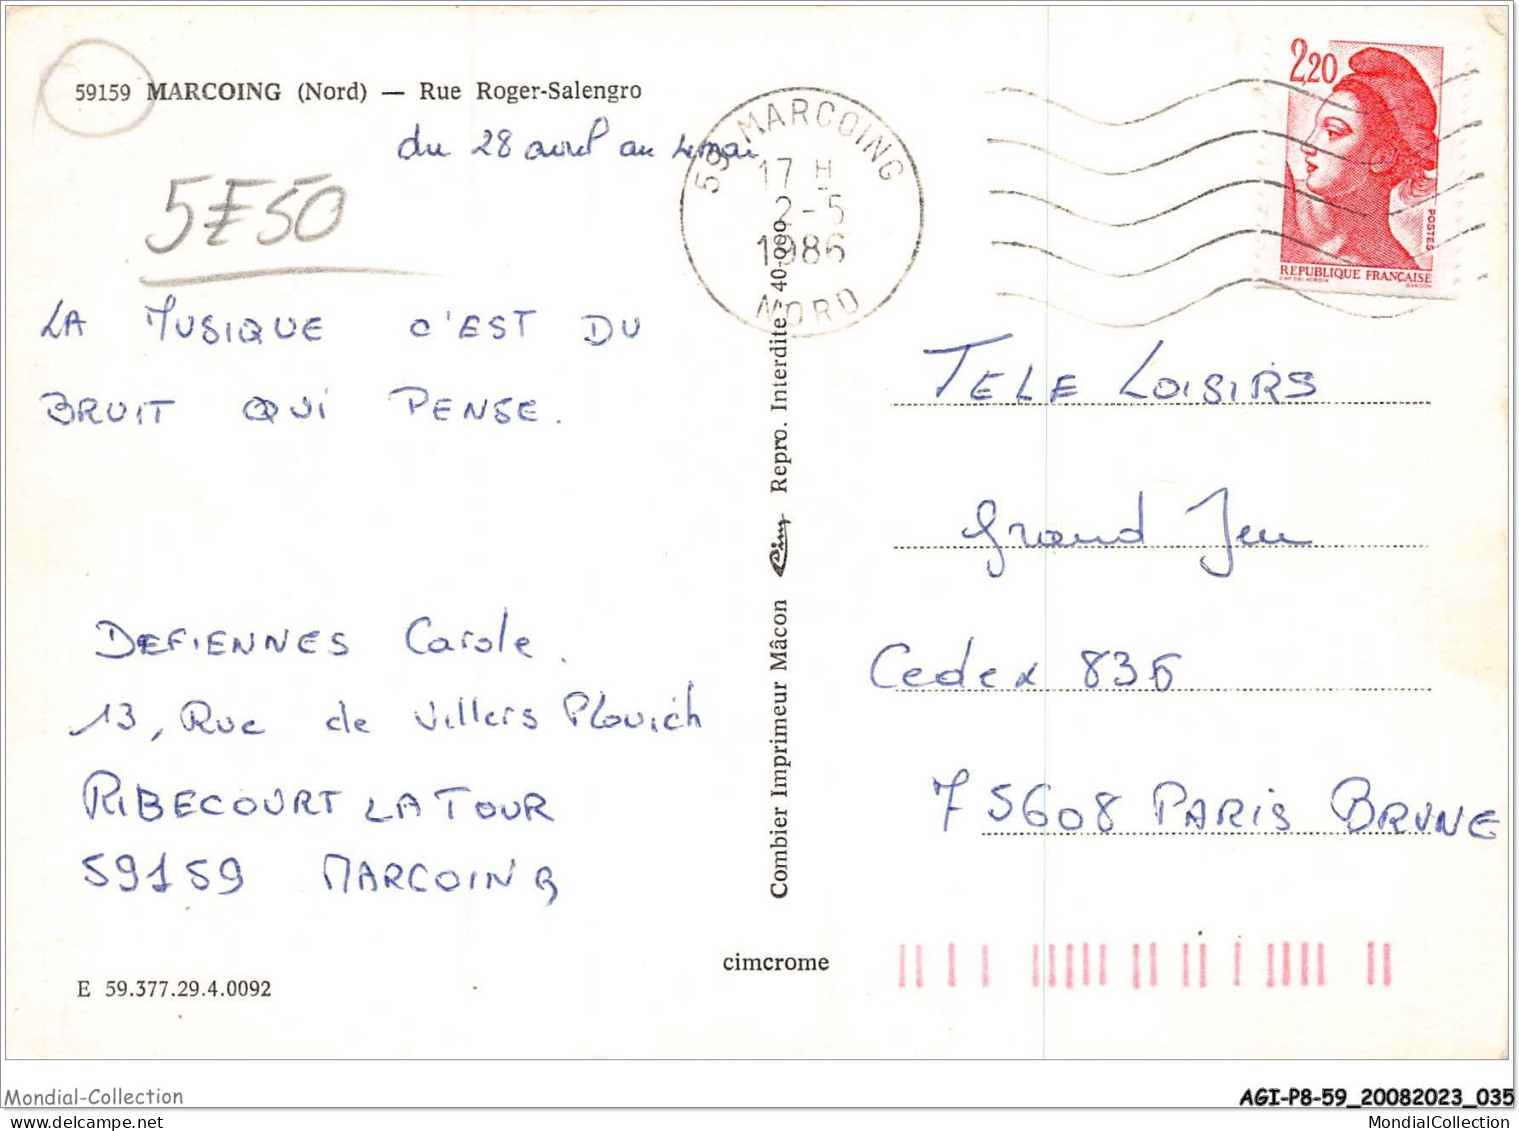 59159 MARCOING (Nord) — Rue Roger-Salengro
du 28 avril au 4 mai
5F50
LA MUSIQUE C'EST DU
BRUIT QUI PENSE.
DEFIENNES Carole.
13, Rue de Villers Plouich
RIBECOURT LA TOUR
59159 MARCOING
E 59.377.29.4.0092
Combier Imprimeur Mâcon Cim Repro. Interdite - 40-090
cimcrome
59 MARCOING
17 H
2-5
1986
NORD
2,20
POSTES
REPUBLIQUE FRANÇAISE
GANDON
TELE LOISIRS
Grand Jeu
Cedex 836
75608 PARIS BRUNE
Mondial-Collection
AGI-P8-59_20082023_035
MondialCollection